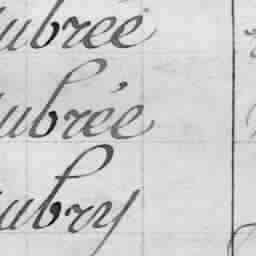 ubrée
ubrée
ubry